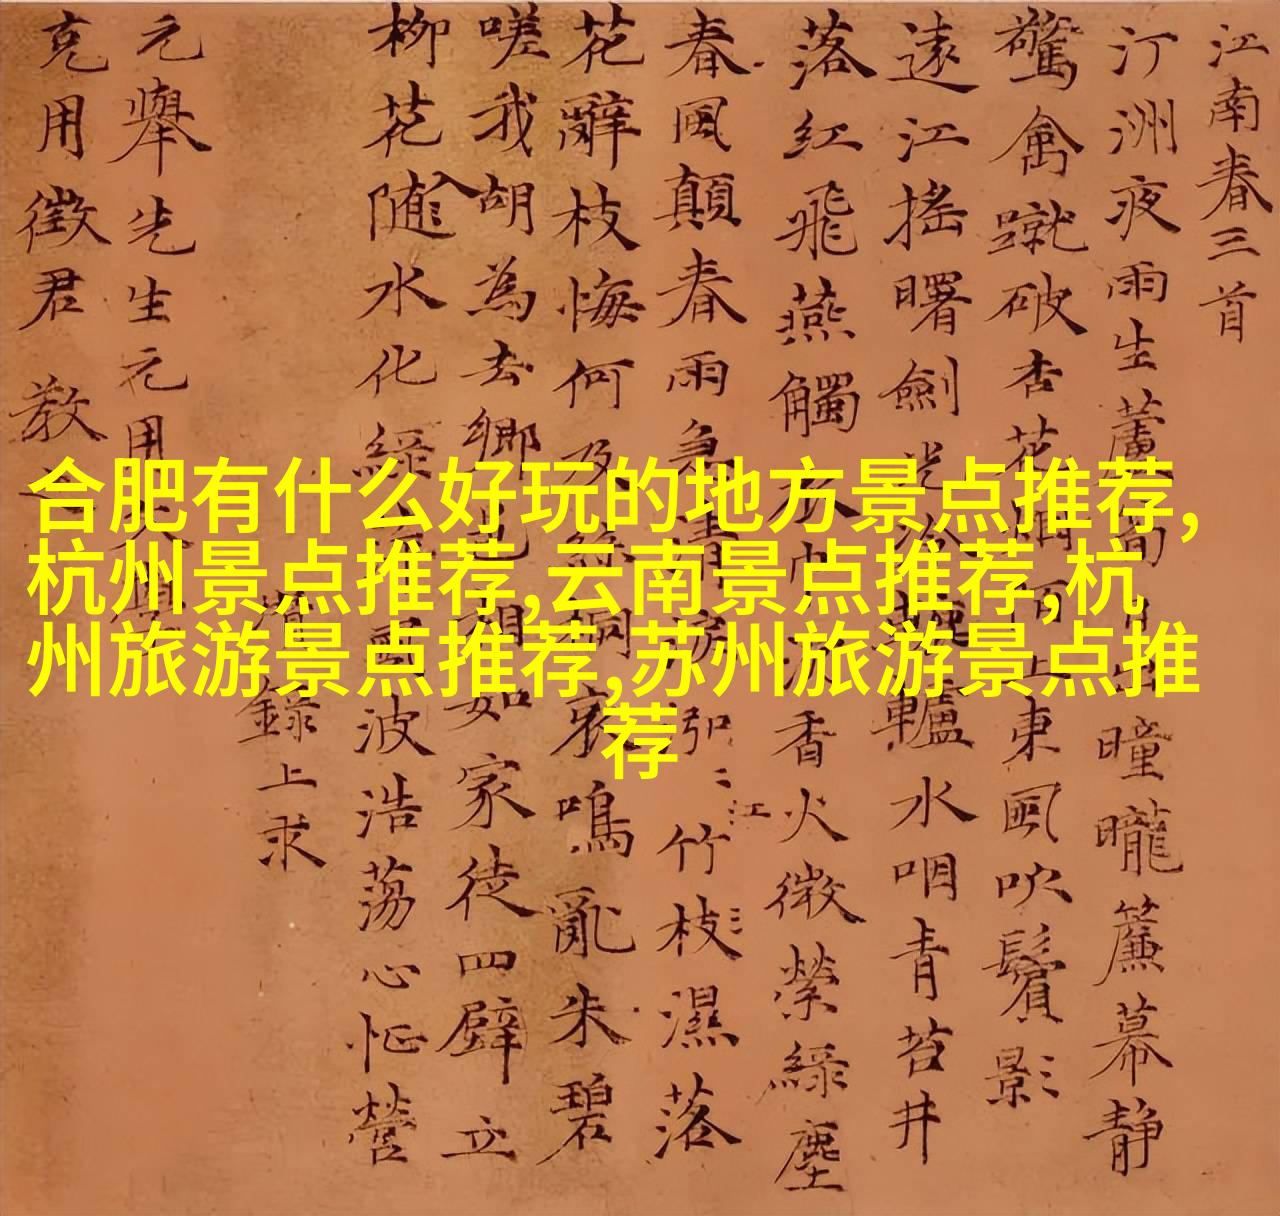 江南春三首
汀洲夜雨生蘆日出曈曨簾幕静
驚禽蹴破杏花烟陌上東風吹鬢影
遠江搖曙劍光冷轆轤水咽青苔井
落紅飛燕觸衣巾沉香火微縈綠塵
春風顛春雨急清泓〻江〻竹枝濕落
花辭枝悔何及絲桐哀鳴亂朱碧
嗟我胡為去鄉邑相如家徒四壁立
柳花随入水化綠萍風波浩蕩心怔營
瓚錄上求
元舉先生元用文
克用徵君 教
合肥有什么好玩的地方景点推荐,
杭州景点推荐,云南景点推荐,杭
州旅游景点推荐,苏州旅游景点推
荐